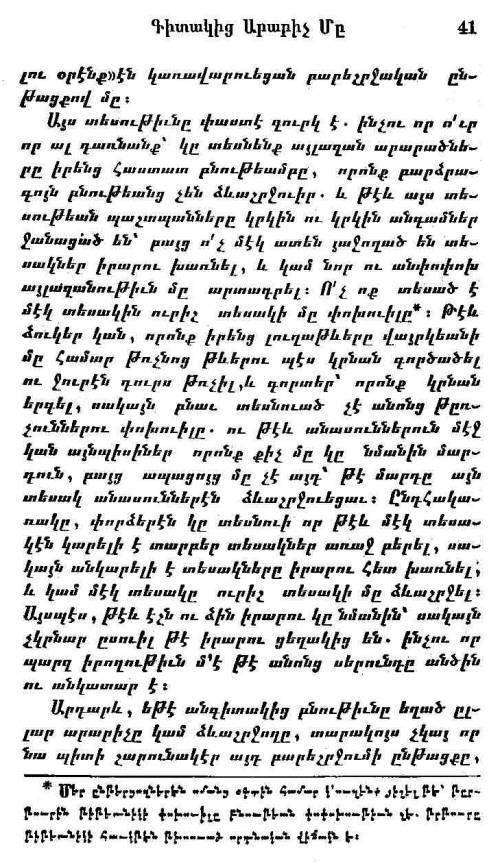 Գիտակից Արարիչ Մը 41
լու օրէնք»էն կառավարուեցան բարեշրջական ըն-
թացքով մը։
Այս տեսութիւնը փաստէ զուրկ է. ինչու որ ո՛ւր
որ ալ դառնանք՝ կը տեսնենք այլազան արարածնե-
րը իրենց հաստատ բնութեամբը, որոնք բարձրա-
գոյն բնութեանց չեն ձևաշրջուիր. և թէև այս տե-
սութեան պաշտպանները կրկին ու կրկին անգամներ
ջանացած են՝ բայց ո՛չ մէկ ատեն յաջողած են տե-
սակներ իրարու խառնել, և կամ նոր ու անփոփոխ
այլազանութիւն մը արտադրել։ Ո՛չ ոք տեսած է
մէկ տեսակին ուրիշ տեսակի մը փոխուիլը*։ Թէև
ձուկեր կան, որոնք իրենց լուղաթևերը վայրկեանի
մը համար թռչնոց թևերու պէս կրնան գործածել
ու ջուրէն դուրս թռչիլ,և գորտեր՝ որոնք կրնան
երգել, սակայն բնաւ տեսնուած չէ անոնց թըռ-
չուններու փոխուիլը. ու թէև անասուններուն մէջ
կան այնպիսիներ որոնք քիչ մը կը նմանին մար-
դուն, բայց ապացոյց մը չէ այդ՝ թէ մարդը այն
տեսակ անասուններէն ձևաշրջուեցաւ։ Ընդհակա-
ռակը, փորձերէն կը տեսնուի որ թէև մէկ տեսա-
կէն կարելի է տարբեր տեսակներ առաջ բերել, սա-
կայն անկարելի է տեսակները իրարու հետ խառնել,
և կամ մէկ տեսակը ուրիշ տեսակի մը ձևաշրջել։
Այսպէս, թէև էշն ու ձին իրարու կը նմանին՝ սակայն
չկրնար ըսուիլ թէ իրարու ցեղակից են. ինչու որ
պարզ իրողութիւն մ'է թէ անոնց սերունդը անծին
ու անկատար է։
Արդարև, եթէ անգիտակից բնութիւնը եղած ըլ-
լար արարիչը կամ ձևաշրջողը, տարակոյս չկայ որ
նա պիտի շարունակէր այդ բարեշրջումի ընթացքը,
* Մեր ընթերցողներէն ոմանց օգտին համար